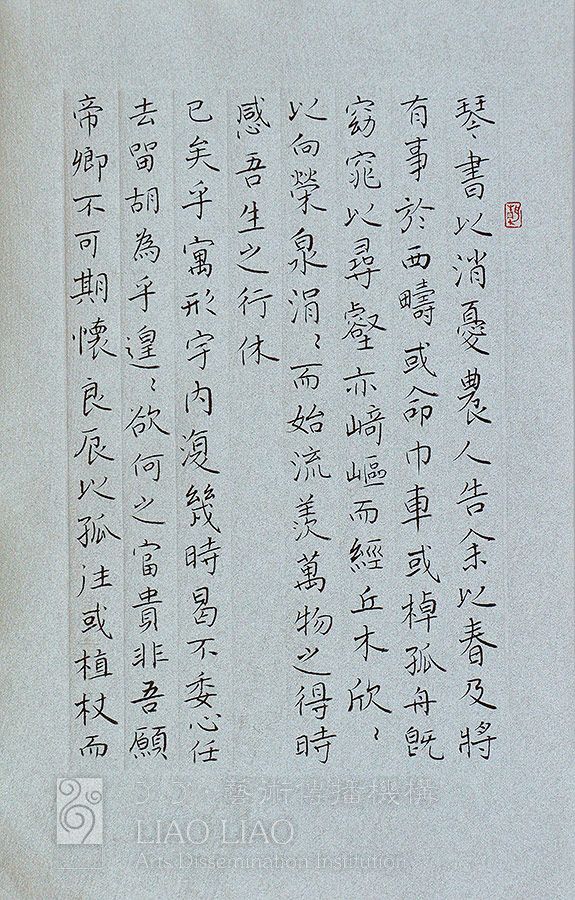 琴書以消憂農人告余以春及將
有事於西疇或命巾車或棹孤舟既
窈窕以尋壑亦崎嶇而經丘木欣〻
以向榮泉涓〻而始流羨萬物之得時
感吾生之行休
已矣乎寓形宇內復幾時曷不委心任
去留胡為乎遑〻欲何之富貴非吾願
帝鄉不可期懷良辰以孤往或植杖而
藝術傳播機構
LIAO LIAO
Arts Dissemination Institution